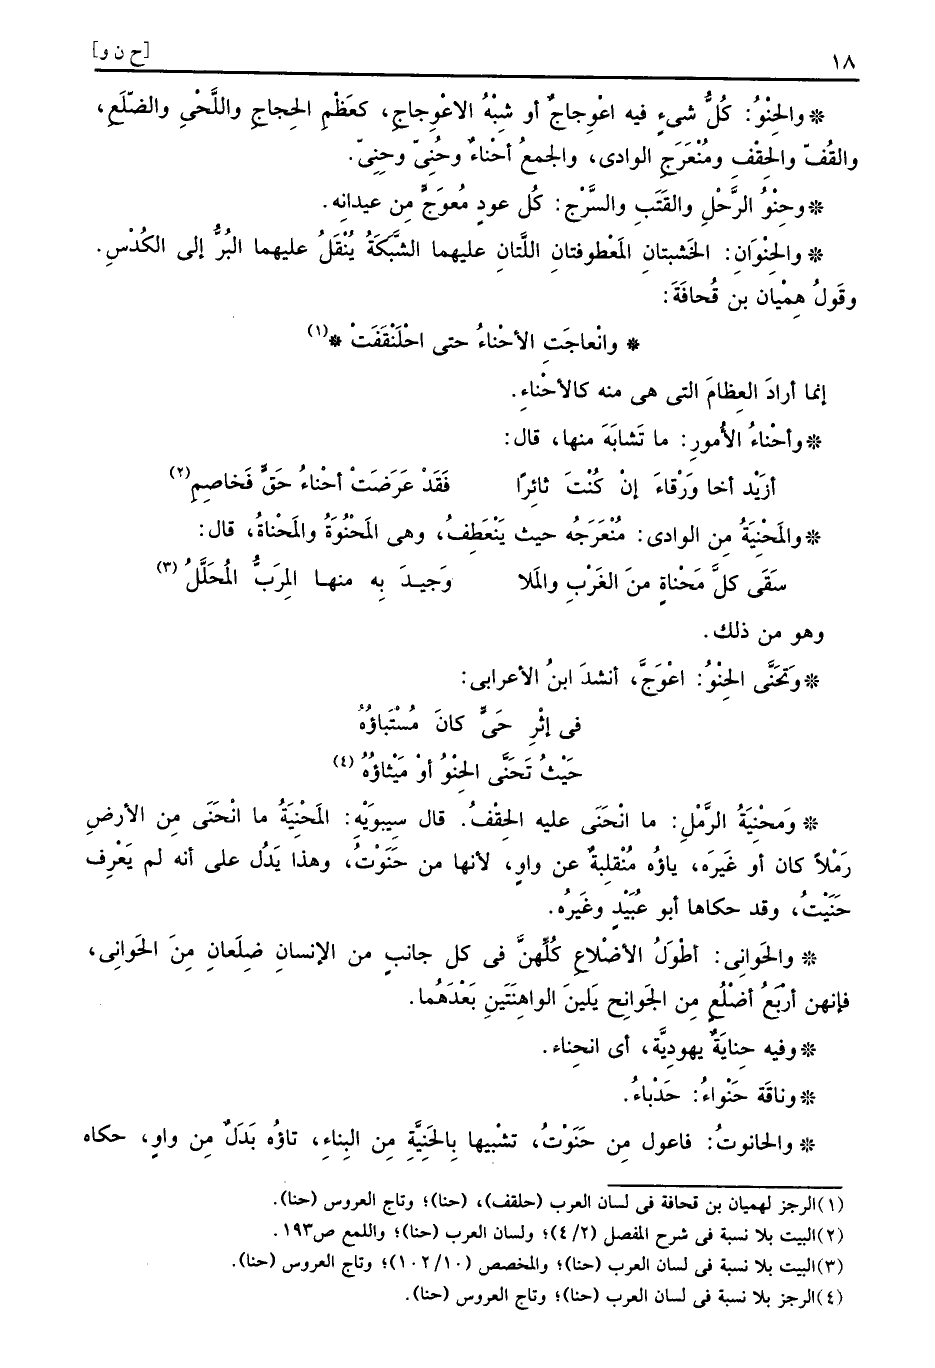 ١٨ [ح ن و]
* والحِنْوُ: كُلُّ شىءٍ فيه اعْوِجاجٌ أو شِبْهُ الاعْوِجاجِ، كعَظْمِ الحِجاجِ واللَّحْىِ والضِّلَعِ،
والقُفّ والحِقْفِ ومُنْعَرَجِ الوادى، والجمعُ أحْناءٌ وحُنِىّ وحِنِىّ.
* وحِنْوُ الرَّحْلِ والقَتَبِ والسَّرْجِ: كل عودٍ مُعوَجٍّ مِن عيدانِه.
* والحِنْوَانِ: الخَشبتانِ المَعْطوفتانِ اللَّتانِ عليهما الشَّبَكَةُ يُنْقَلُ عليهما البُرُّ إلى الكُدْسِ.
وقَولُ هِمْيان بن قُحافَةَ:
* وانْعاجَتِ الأحْناءُ حتى احْلَنْقَفَتْ *(١)
إنما أرادَ العِظامَ التى هى منه كالأحْناءِ.
* وأحْناءُ الأُمورِ: ما تَشابَهَ منها، قال:
أزَيْد أخا ورَْقاءَ إنْ كُنْتَ ثائِرًا فَقَدْ عَرَضَتْ أحْناءُ حَقٍّ فَخاصِمِ(٢)
* والمَحْنِيَةُ مِن الوادى: مُنْعَرَجُه حيث يَنْعَطِفُ، وهى المَحْنُوَةُ والمَحْناةُ، قال:
سَقَى كلَّ مَحْناةٍ منَ الغَرْبِ والمَلا وَجِيدَ بِه منها المِرَبُّ المُحَلَّلُ(٣)
وهو من ذلك.
* وتَحَنَّى الحِنْوُ: اعْوَجَّ، أنشدَ ابنُ الأعرابى:
فى إثْرِ حَىٍّ كانَ مُسْتَباؤُهُ
حَيْثُ تَحَنَّى الحِنْوُ أوْ مَيْثاؤُهُ(٤)
* ومَحْنِيَةُ الرَّمْلِ: ما انْحَنَى عليه الحِقْفُ. قال سيبوَيْهِ: المَحْنِيَةُ ما انْحَنَى مِن الأرضِ
رَمْلاً كان أو غَيرَه، ياؤُه مُنْقلِبةٌ عن واوٍ، لأنها من حَنَوْتُ، وهذا يَدُل على أنه لم يَعْرِف
حَنَيْتُ، وقد حكاها أبو عُبَيْدٍ وغيرُه.
* والحَوانِى: أطْوَلُ الأضْلاعِ كُلِّهنَّ فى كل جانبٍ من الإنسانِ ضِلَعانِ مِنَ الحَوانِى،
فإنهن أرْبَعُ أضْلُعٍ مِن الجَوانِحِ يَلينَ الواهِنَتَينِ بَعْدَهُما.
* وفيه حِنايَةٌ يهودِيَّة، أى انحِناء.
* وناقَة حَنْواءُ: حَدْباءُ.
* والحانوتُ: فاعول مِن حَنَوْتُ، تشْبيها بِالحَنِيَّةِ مِن البِناءِ، تاؤُه بَدَلٌ مِن واوٍ، حكاه
(١) الرجز لهميان بن قحافة فى لسان العرب (حلقف)، (حنا)؛ وتاج العروس (حنا).
(٢) البيت بلا نسبة فى شرح المفصل (٤/٢)؛ ولسان العرب (حنا)؛ واللمع ص١٩٣.
(٣) البيت بلا نسبة فى لسان العرب (حنا)؛ والمخصص (١٠٢/١٠)؛ وتاج العروس (حنا).
(٤) الرجز بلا نسبة فى لسان العرب (حنا)؛ وتاج العروس (حنا).